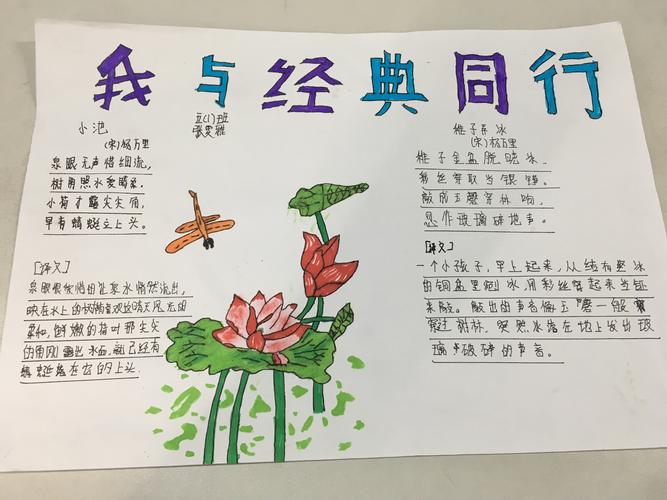 我与经典同行
小池
(宋)杨万里
泉眼无声惜细流，
树阴照水爱晴柔。
小荷才露尖尖角，
早有蜻蜓立上头。
[译文]
泉眼很爱惜地让泉水悄然流出，
映在水上的树荫喜欢这晴天风光的
柔和，鲜嫩的荷叶那尖尖
的角刚露出水面，就已经有
蜻蜓落在它的上头
五(1)班
张雯雅
稚子弄冰
(宋)杨万里
稚子金盆脱晓冰，
彩丝穿取当银铮。
敲成玉磬穿林响，
忽作玻璃碎地声。
[译文]
一个小孩子，早上起来，从结有坚冰
的铜盆里剜冰，用彩丝穿起来当钲
来敲。敲出的声音像玉磬一般
穿过树林，突然冰落在地上发出玻
璃破碎的声音。